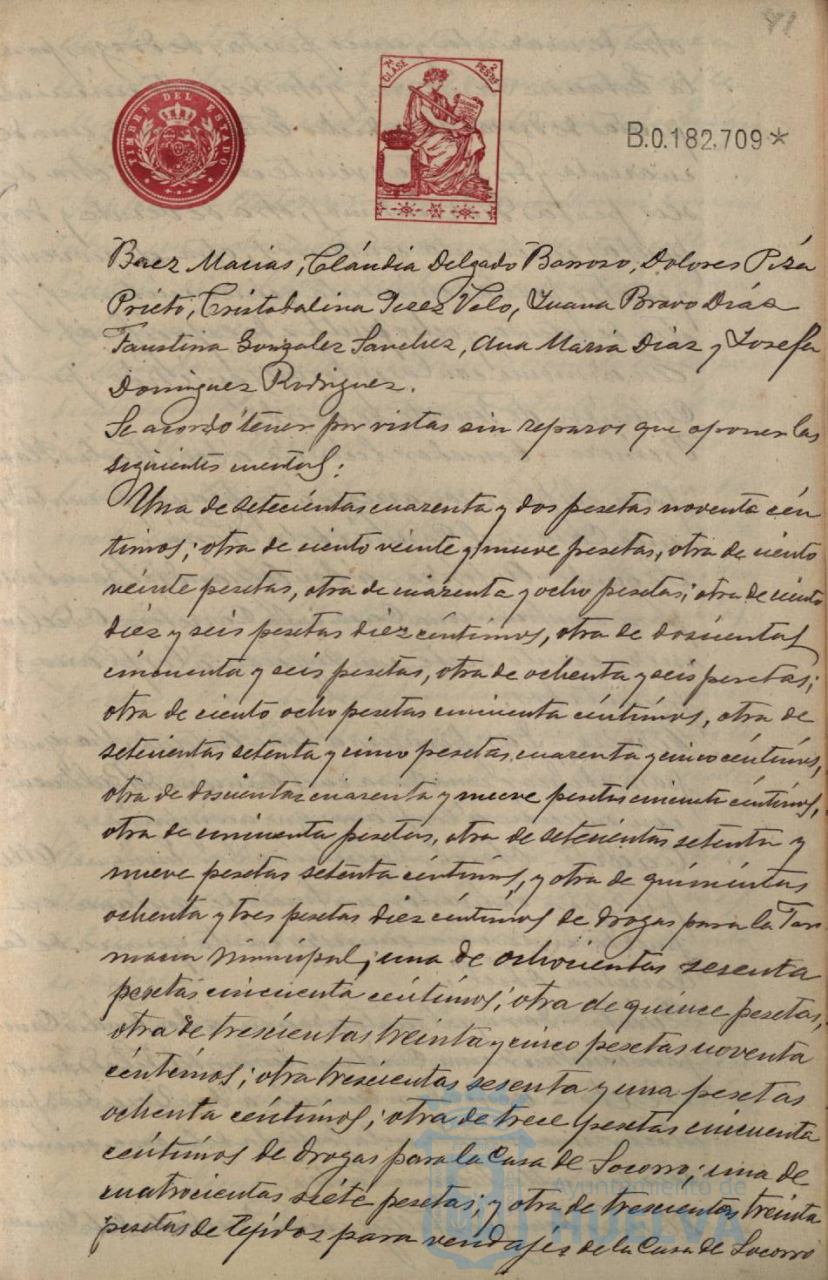 71
TIMBRE DEL ESTADO
7ª CLASE 2 PESETAS
B.0.182,709*
Baez Macias, Cláudia Delgado Barroso, Dolores Piza
Prieto, Cristobalina Perez Velo, Juana Bravo Diáz
Faustina Gonzalez Sanchez, Ana Maria Diaz y Josefa
Dominguez Rodriguez.
Se acordó tener por vistas sin reparos que oponer las
siguientes cuentas:
Una de setecientas cuarenta y dos pesetas noventa cén
timos; otra de ciento veinte y nueve pesetas, otra de ciento
veinte pesetas, otra de cuarenta y ocho pesetas; otra de ciento
diez y seis pesetas diez céntimos, otra de doscientas
cincuenta y seis pesetas, otra de ochenta y seis pesetas;
otra de ciento ocho pesetas cincuenta céntimos, otra de
setecientas setenta y cinco pesetas cuarenta y cinco céntimos,
otra de doscientas cuarenta y nueve pesetas cincuenta céntimos,
otra de cincuenta pesetas, otra de setecientas setenta y
nueve pesetas setenta céntimos, y otra de quinientas
ochenta y tres pesetas diez céntimos de drogas para la Far
macia Municipal; una de ochocientas sesenta
pesetas cincuenta céntimos; otra de quince pesetas,
otra de trescientas treinta y cinco pesetas noventa
céntimos; otra trescientas sesenta y una pesetas
ochenta céntimos; otra de trece pesetas cincuenta
céntimos de drogas para la Casa de Socorro; una de
cuatrocientas siete pesetas; y otra de trescientas treinta
pesetas de tejidos para vendajes de la Casa de Socorro
Ayuntamiento de
HUELVA